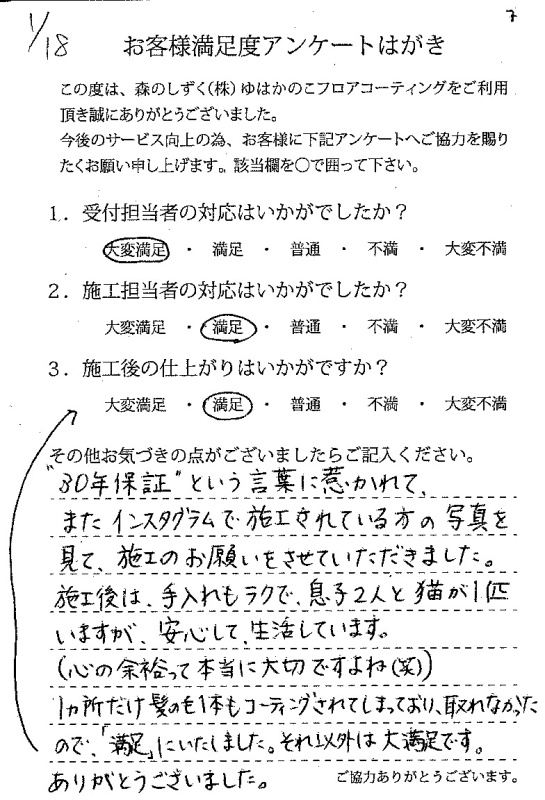 7
1/18
お客様満足度アンケートはがき
この度は、森のしずく(株)ゆはかのこフロアコーティングをご利用
頂き誠にありがとうございました。
今後のサービス向上の為、お客様に下記アンケートへご協力を賜り
たくお願い申し上げます。該当欄を○で囲って下さい。
1．受付担当者の対応はいかがでしたか？
大変満足 ・ 満足 ・ 普通 ・ 不満 ・ 大変不満
2．施工担当者の対応はいかがでしたか？
大変満足 ・ 満足 ・ 普通 ・ 不満 ・ 大変不満
3．施工後の仕上がりはいかがですか？
大変満足 ・ 満足 ・ 普通 ・ 不満 ・ 大変不満
その他お気づきの点がございましたらご記入ください。
"30年保証"という言葉に惹かれて、
またインスタグラムで施工されている方の写真を
見て、施工のお願いをさせていただきました。
施工後は、手入れもラクで、息子2人と猫が1匹
いますが、安心して、生活しています。
(心の余裕って本当に大切ですよね(笑))
1ヵ所だけ髪の毛1本もコーティングされてしまっており、取れなかった
ので、「満足」にいたしました。それ以外は大満足です。
ありがとうございました。
ご協力ありがとうございます。